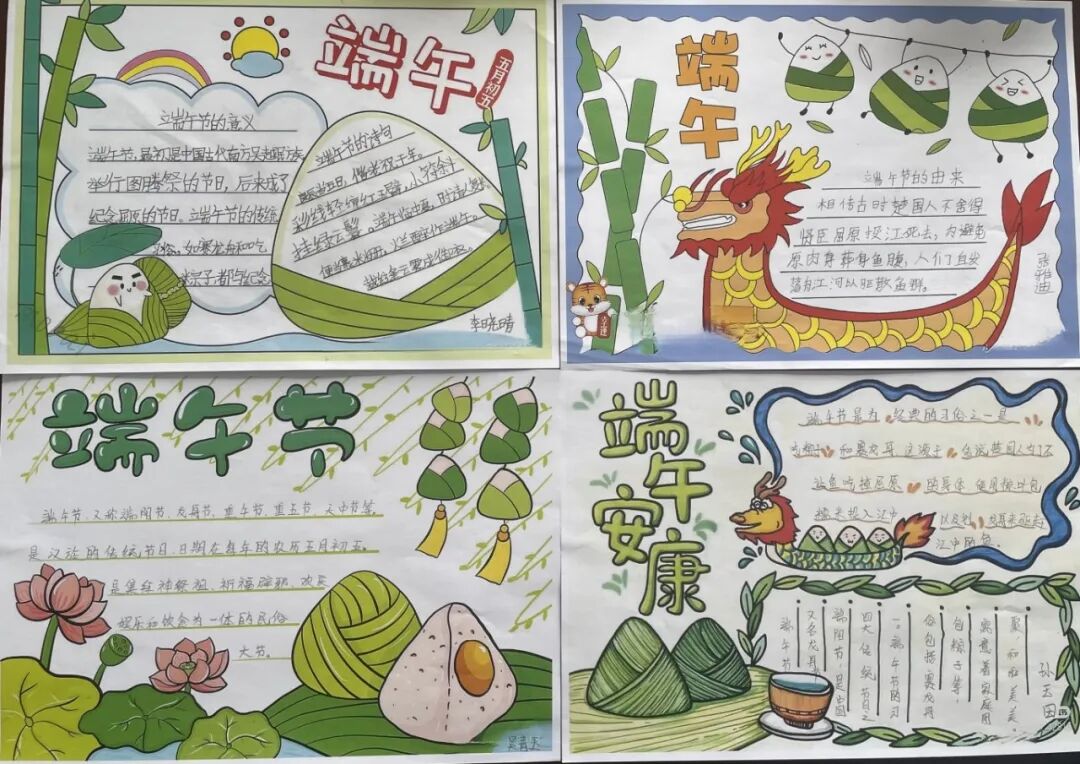 端午
五月初五
端午节的意义
端午节,最初是中国古代南方吴越民族
举行图腾祭的节日,后来成了
纪念屈原的节日。端午节的传统
如赛龙舟和吃
粽子,都与纪念
端午节的诗句
彩线轻缠红臂,小符斜
挂绿云鬟。
李晓晴
端午
端午节的由来
相传古时楚国人不舍得
贤臣屈原投江死去,为避免
原肉身葬身鱼腹,人们
江河以驱散鱼群。
张雅迪
幸运
端午节
端午节,又称端阳节、龙舟节、重午节、重五节、天中节等,
是汉族的传统节日.日期在每年的农历五月初五。
是集拜神祭祖、祈福辟邪、欢庆
娱乐和饮食为一体的民俗
大节。
吴青玉
端午安康
端午节最为经典的习俗之一是
吃粽子和赛龙舟
让鱼吃掉屈原的身体
糯米投入江中
江中的鱼。
端午节
又名龙舟
端阳节,是中国
四大传统节日之
一。端午节的习
俗包括赛龙舟
包粽子等,
寓意着家庭团
聚,和和美美。
孙玉田